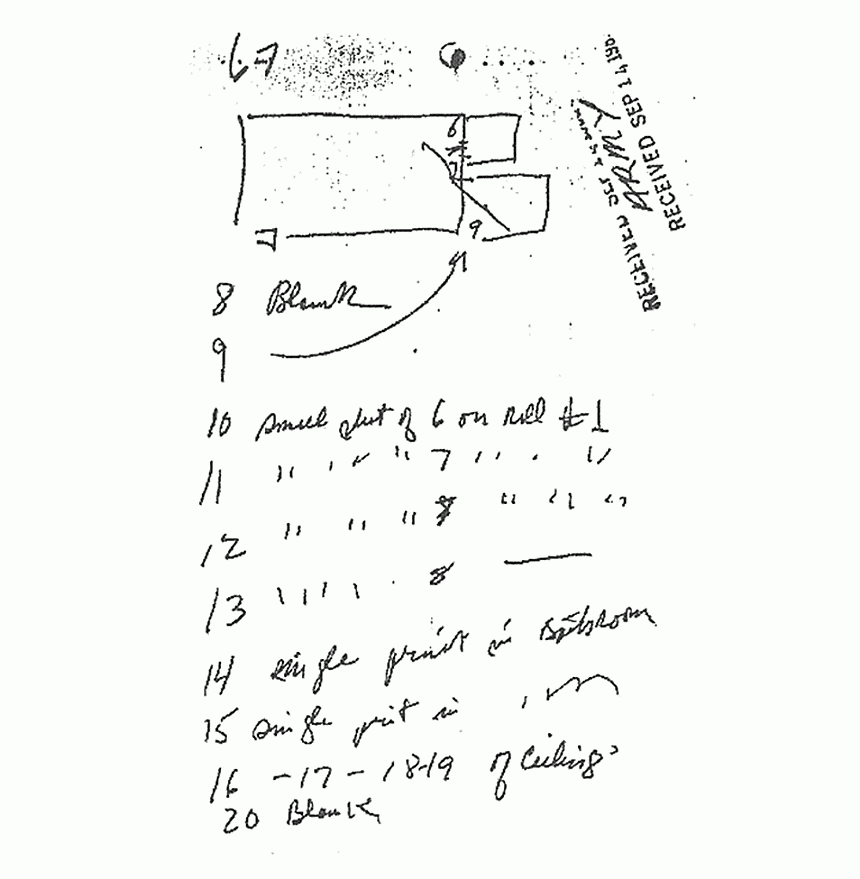 67
RECEIVED SEP 14 19
ARMY
RECEIVED
6
7
9
8 Blank
9
10 small shot of 6 on roll #1
11 " " " " 7 " " "
12 " " " 8 " " "
13 " " " " 8 —
14 single print in Bathroom
15 single print in " "
16 -17 - 18-19 of Ceiling
20 Blank